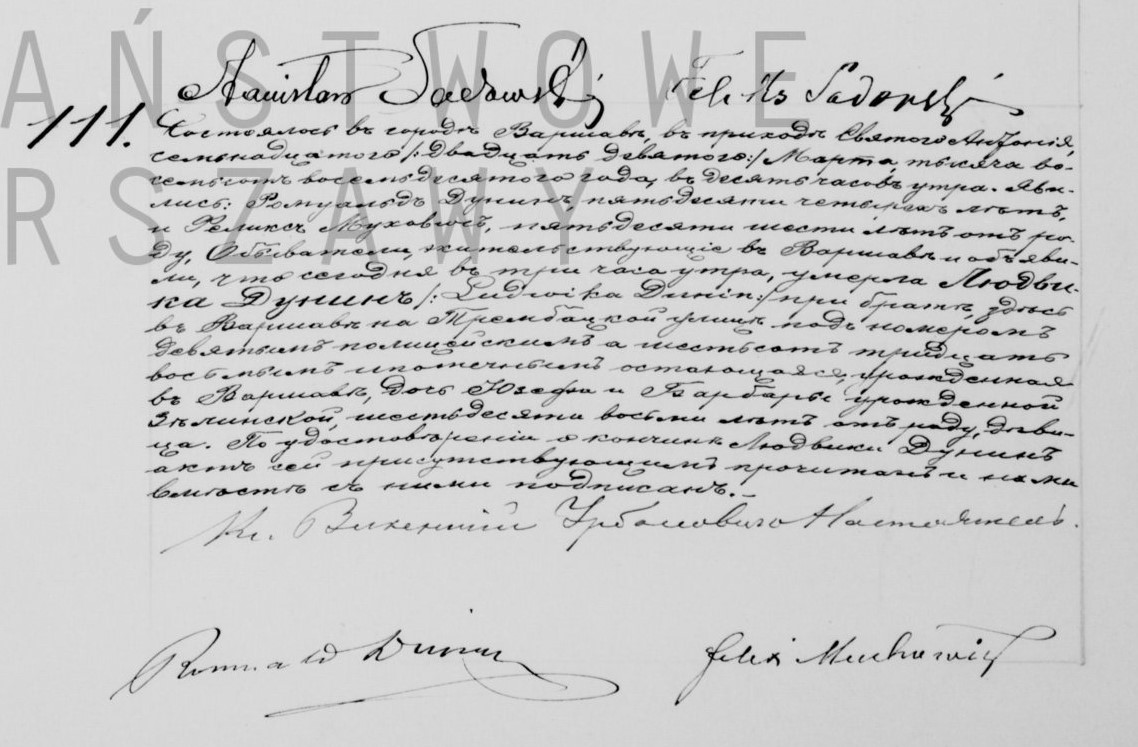 PAŃSTWOWE
WARSZAWY
Stanisław Sadowski Feliks Sadowski
111.
Состоялось въ городѣ Варшавѣ, въ приходѣ Святого Антонія,
семьнадцатого /:двадцать девятого:/ Марта, тысяча во-
семьсотъ восемьдесятого года, въ десять часовъ утра. Яви-
лись: Ромуальдъ Дунинъ пятьдесяти четырехъ лѣтъ,
и Феликсъ Муховичъ, пятьдесяти шести лѣтъ отъ ро-
ду, Обыватели, жительствующіе въ Варшавѣ и объяви-
ли, что сегодня въ три часа утра, умерла Людви-
ка Дунинъ /:Ludwika Dunin:/ при братѣ, здѣсь
въ Варшавѣ на Трембацкой улицѣ подъ номеромъ
девятымъ полицейскимъ а шестьсотъ тридцать
восьмымъ ипотечнымъ остающаяся, урожденная
въ Варшавѣ, дочь Юзефа и Барбары урожденной
Зѣлинской, шестьдесяти восьми лѣтъ отъ роду, дѣви-
ца. По удостовѣреніи о кончинѣ Людвики Дунинъ
актъ сей присутствующимъ прочитанъ и нами
вмѣстѣ съ ними подписанъ.-
Кс. Викентій Настоятель.
Romuald Dunin Felix Muchowicz